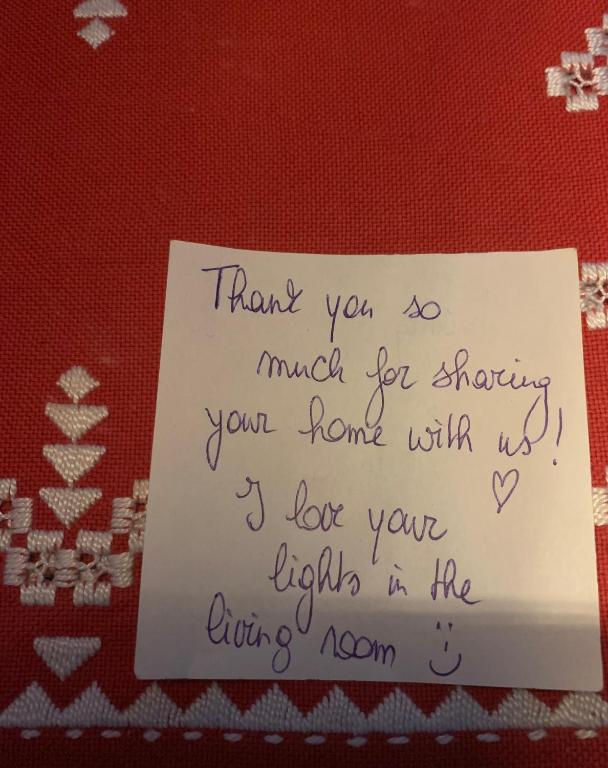 Thank you so
much for sharing
your home with us!
♡
I love your
lights in the
living room :)